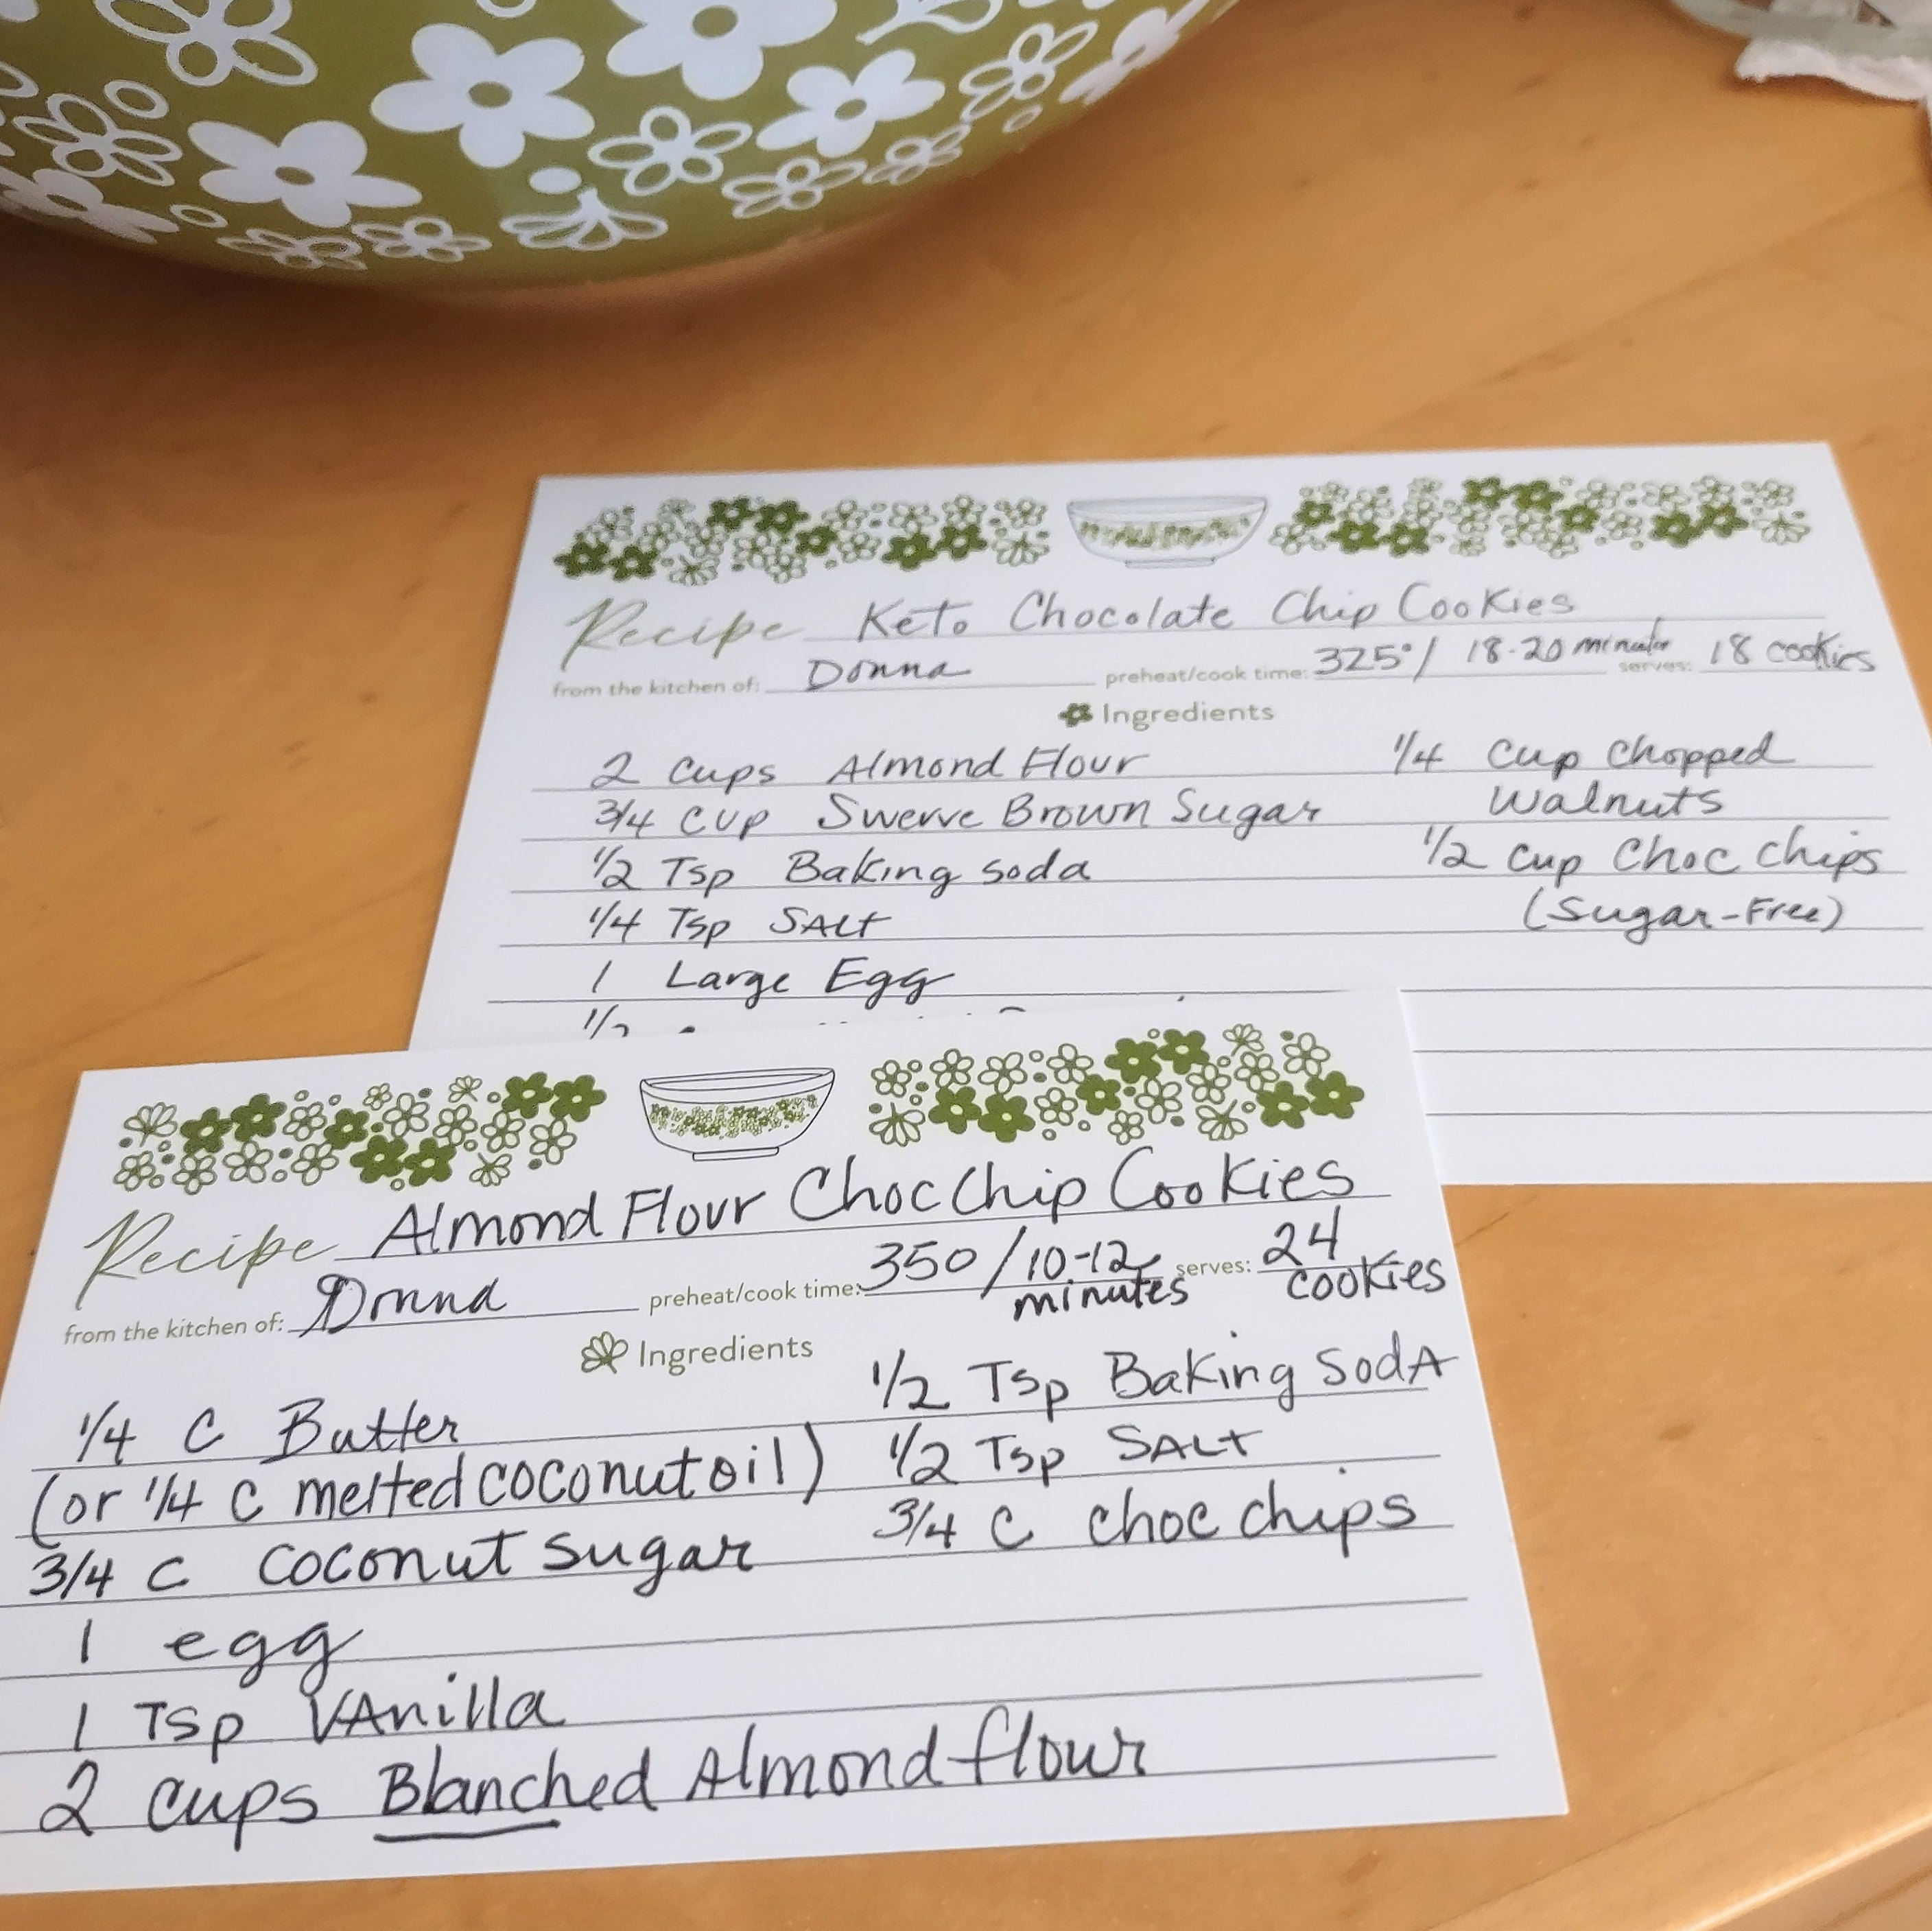 Recipe Keto Chocolate Chip Cookies
from the kitchen of: Donna preheat/cook time: 325°/ 18-20 minutes serves: 18 cookies
Ingredients
2 Cups Almond Flour
3/4 Cup Swerve Brown Sugar
1/2 Tsp Baking soda
1/4 Tsp SALt
1 Large Egg
1/2
1/4 Cup Chopped
Walnuts
1/2 Cup Choc Chips
(Sugar-Free)
Recipe Almond Flour Choc Chip Cookies
from the kitchen of: Donna preheat/cook time: 350/10-12 minutes serves: 24 cookies
Ingredients
1/4 C Butter
(or 1/4 C melted coconut oil)
3/4 C Coconut Sugar
1 egg
1 Tsp VAnilla
2 cups Blanched Almond flour
1/2 Tsp Baking SodA
1/2 Tsp SALt
3/4 C choc chips